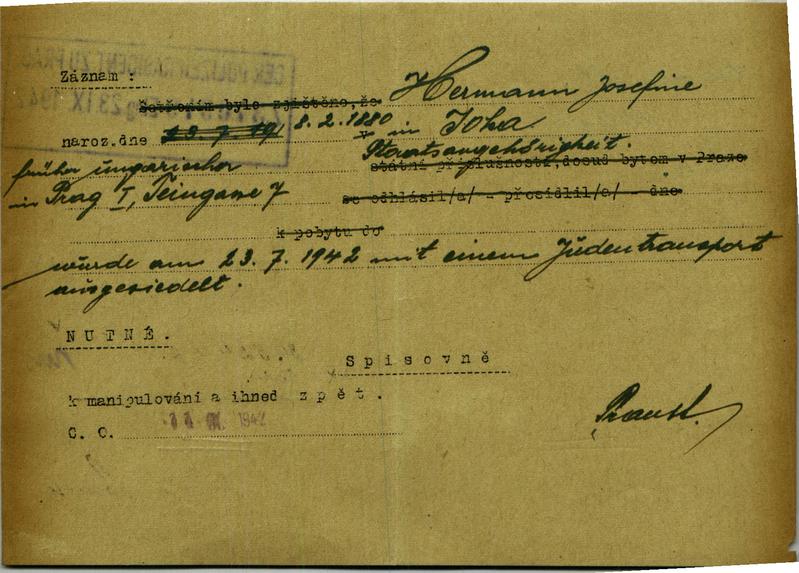 Záznam: Hermann Josefine
Šetřením bylo zjištěno, že
naroz. dne 8.2.1880 v in Joka
früher ungarischer Staatsangehörigkeit.
státní příslušnosti, dosud bytem v Praze
in Prag I, Teingasse 7
se odhlásil/a/ - přesídlil/a/ - dne
k pobytu do
wurde am 23.7.1942 mit einem Judentransport
ausgesiedelt.
NUTNÉ.
Spisovně
k manipulování a ihned zpět.
C. O. 1942